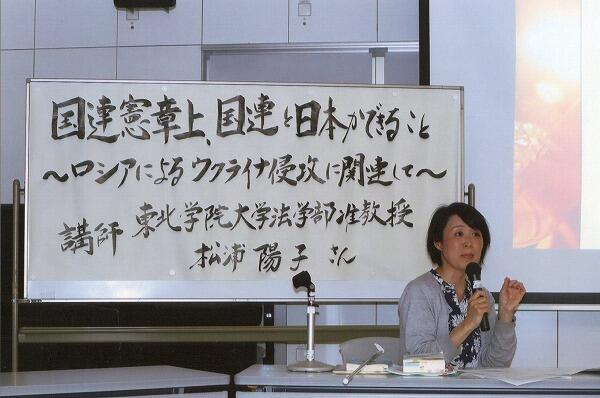 国連憲章上、国連と日本ができること
～ロシアによるウクライナ侵攻に関連して～
講師 東北学院大学法学部准教授
松浦陽子さん